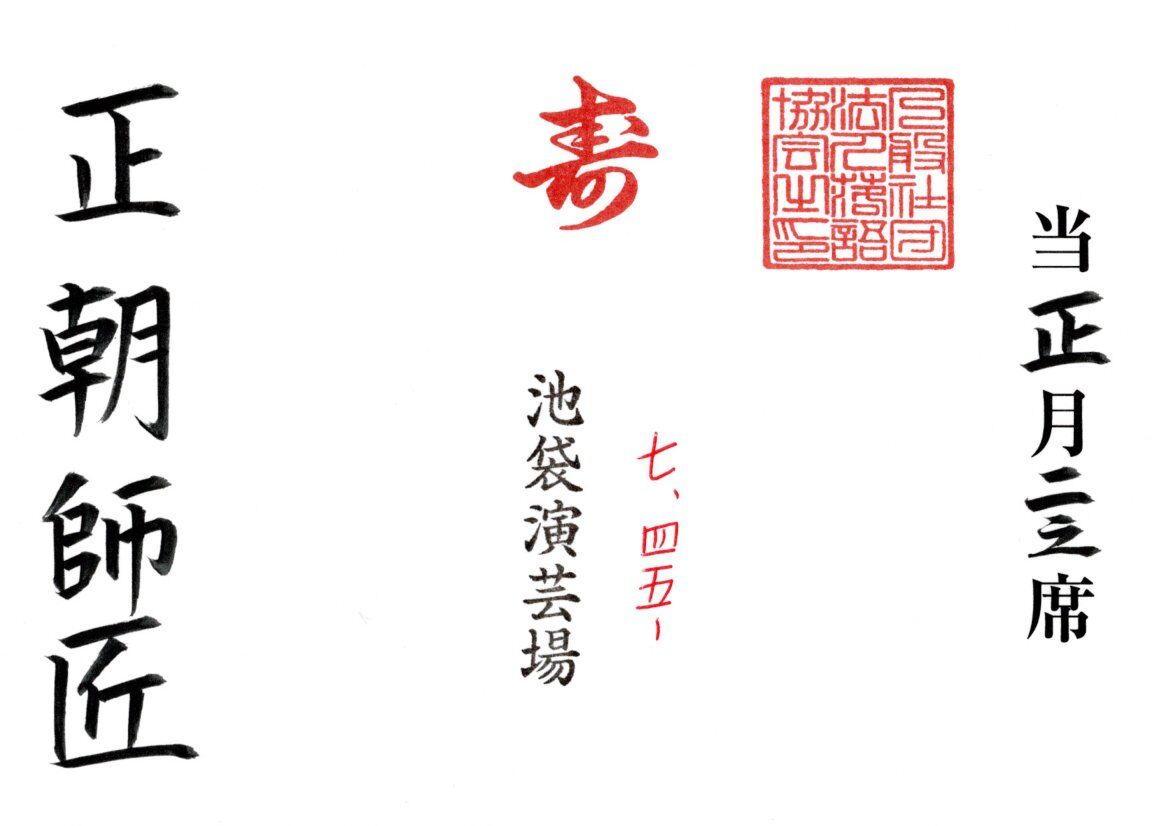 当正月二之席
一般社団
法人落語
協会之印
寿
七、四五〜
池袋演芸場
正朝師匠